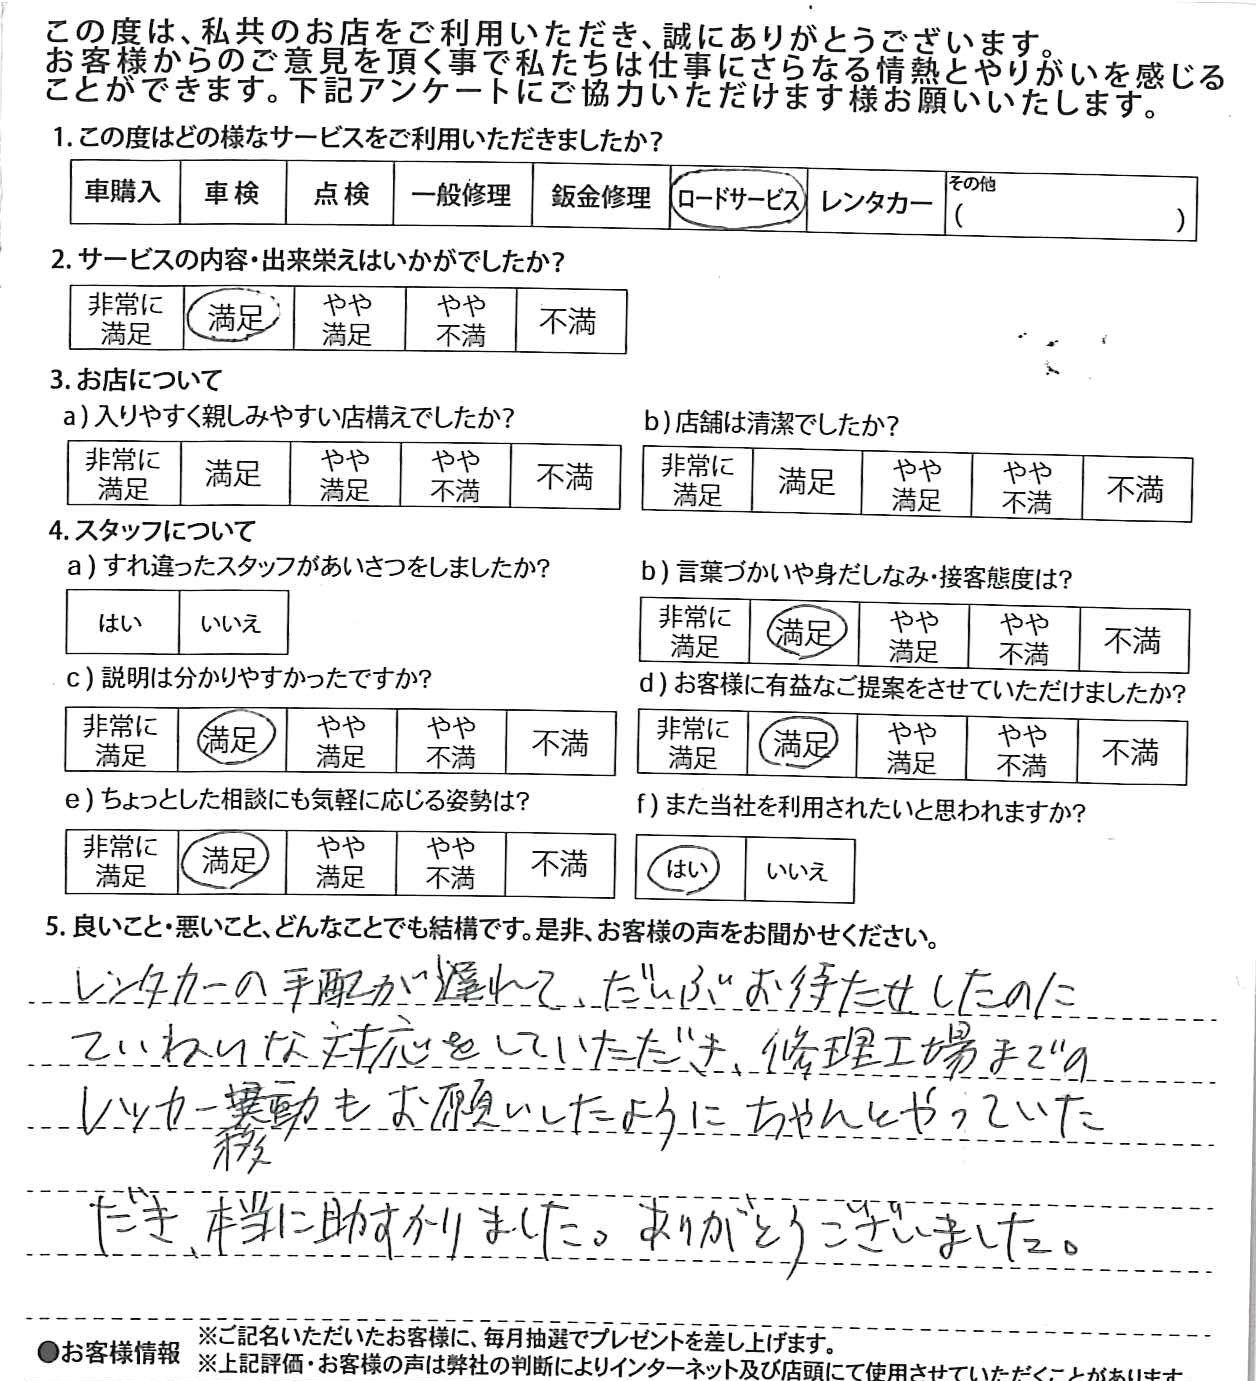 この度は、私共のお店をご利用いただき、誠にありがとうございます。
お客様からのご意見を頂く事で私たちは仕事にさらなる情熱とやりがいを感じる
ことができます。下記アンケートにご協力いただけます様お願いいたします。
1. この度はどの様なサービスをご利用いただきましたか?
車購入 車検 点検 一般修理 鈑金修理 ロードサービス レンタカー その他 ( )
2. サービスの内容・出来栄えはいかがでしたか?
非常に満足 満足 やや満足 やや不満 不満
3. お店について
a) 入りやすく親しみやすい店構えでしたか?
非常に満足 満足 やや満足 やや不満 不満
b) 店舗は清潔でしたか?
非常に満足 満足 やや満足 やや不満 不満
4. スタッフについて
a) すれ違ったスタッフがあいさつをしましたか?
はい いいえ
b) 言葉づかいや身だしなみ・接客態度は?
非常に満足 満足 やや満足 やや不満 不満
c) 説明は分かりやすかったですか?
非常に満足 満足 やや満足 やや不満 不満
d) お客様に有益なご提案をさせていただけましたか?
非常に満足 満足 やや満足 やや不満 不満
e) ちょっとした相談にも気軽に応じる姿勢は?
非常に満足 満足 やや満足 やや不満 不満
f) また当社を利用されたいと思われますか?
はい いいえ
5. 良いこと・悪いこと、どんなことでも結構です。是非、お客様の声をお聞かせください。
レンタカーの手配が遅れて、だいぶお待たせしたのに
ていねいな対応をしていただき、修理工場までの
レッカー異動もお願いしたようにちゃんとやっていた
移
だき、本当に助すかりました。ありがとうございました。
●お客様情報
※ご記名いただいたお客様に、毎月抽選でプレゼントを差し上げます。
※上記評価・お客様の声は弊社の判断によりインターネット及び店頭にて使用させていただくことがあります